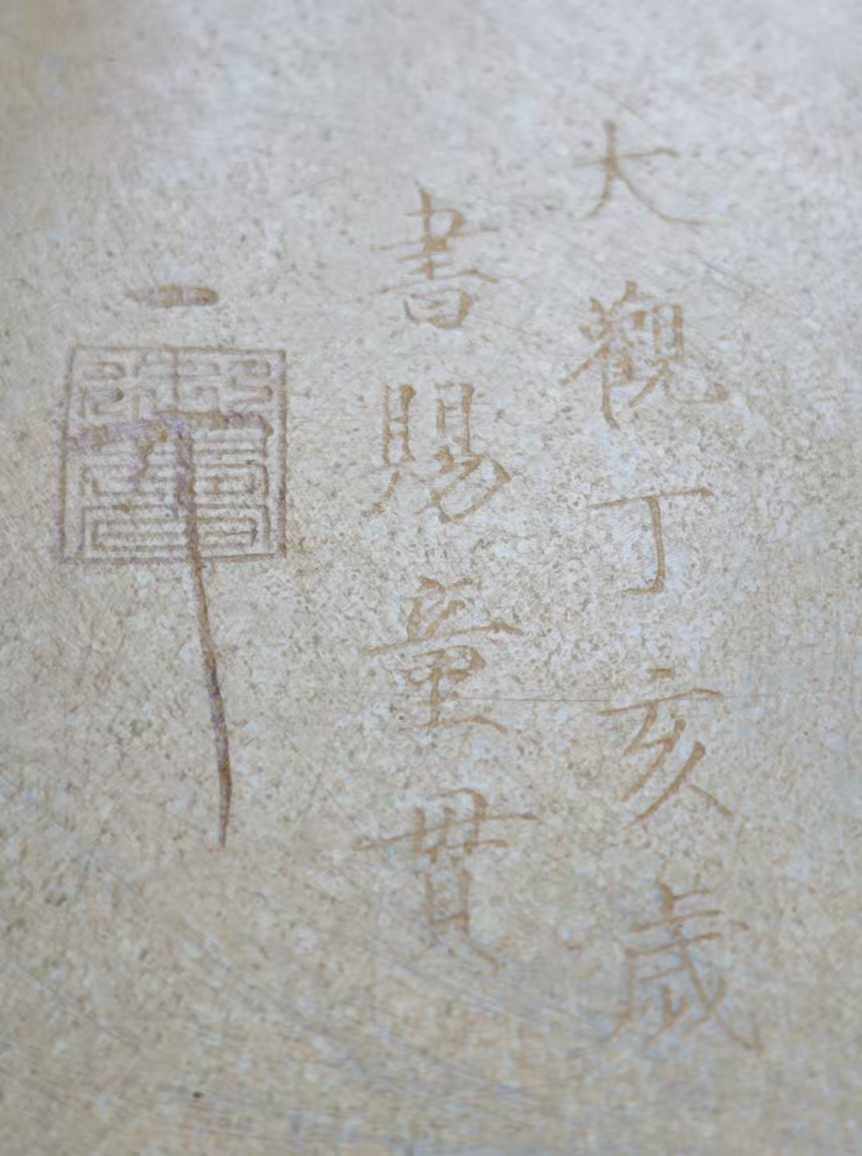 大觀丁亥歲
書賜童貫